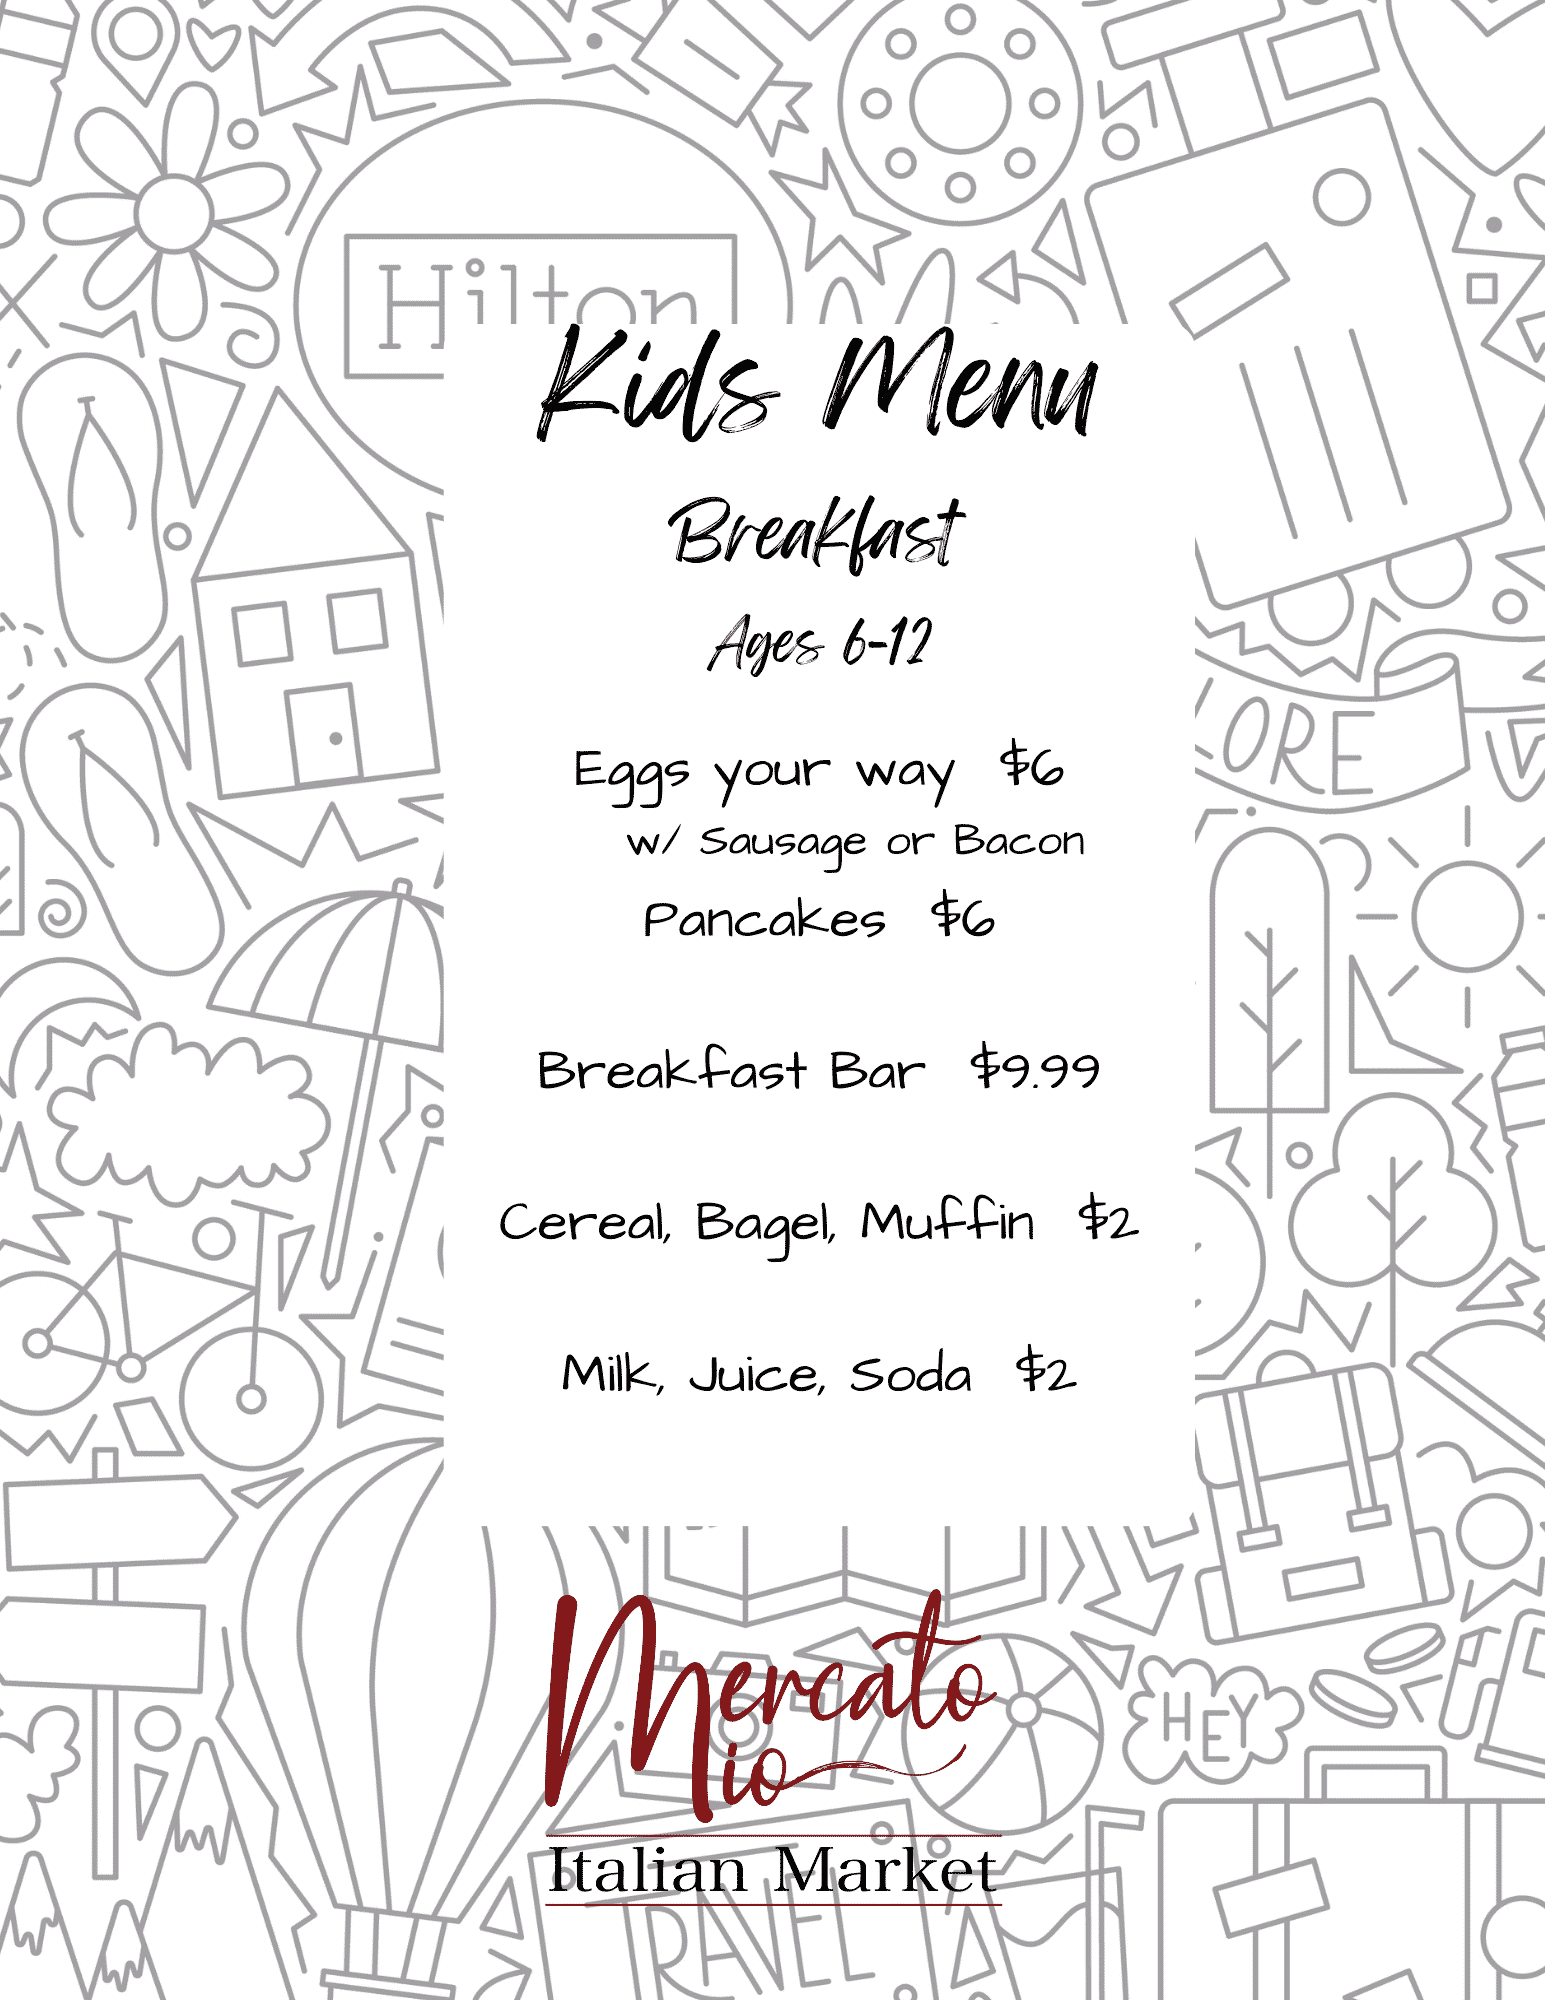 Hilton
Kids Menu
Breakfast
Ages 6-12
Eggs your way $6
w/ Sausage or Bacon
Pancakes $6
Breakfast Bar $9.99
Cereal, Bagel, Muffin $2
Milk, Juice, Soda $2
Mercato
Mio
HEY
Italian Market
TRAVEL